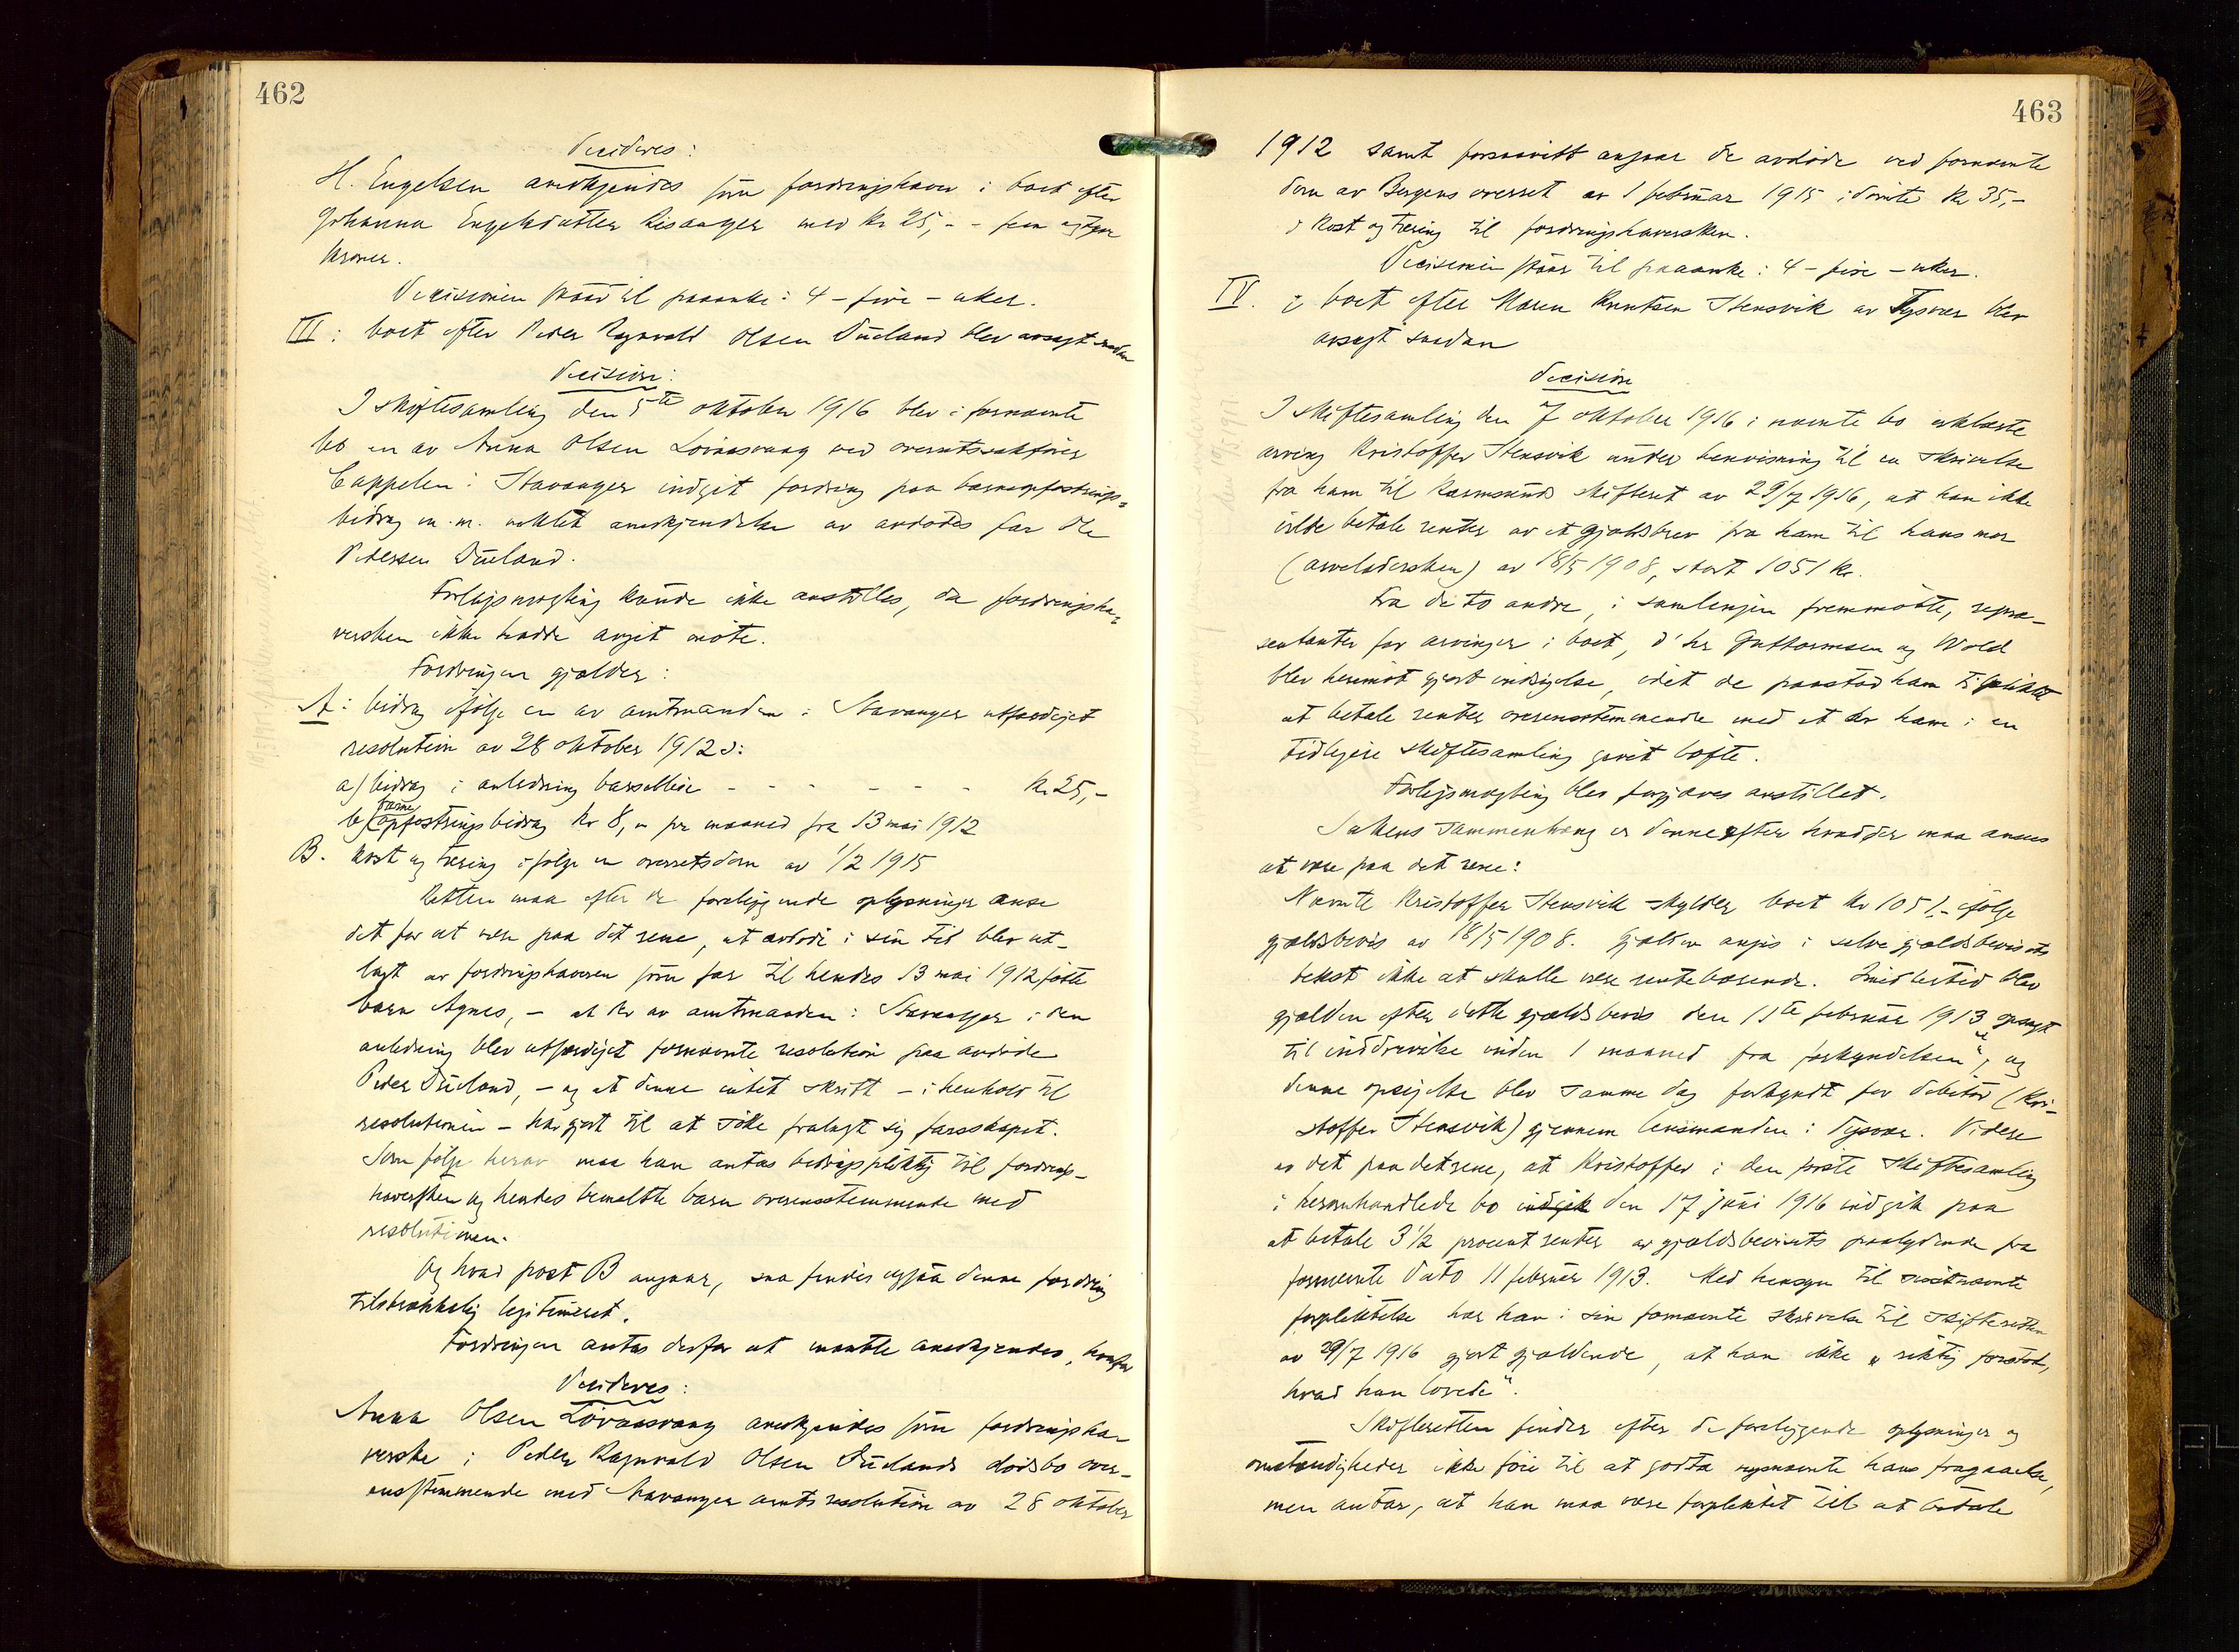 462
Decideres:
H. Engelsen anerkjendes som fordringshaver i boet efter
Johanna Engelsdatter Risanger med kr 25,- - fem og tyve
kroner.
Decisionen staar til paaanke i 4 - fire - uker.
III. I boet efter Peder Ragnvald Olsen Dueland blev avsagt sadan
Decision:
I skiftesamling den 5te oktober 1916 blev i fornævnte
bo en av Anna Olsen Lovaasvang ved overretssakfører
Cappelen i Stavanger indgit fordring paa barneopfostrings-
bidrag m.m. negtet anerkjendelse av avdødes far Ole
Pedersen Dueland.
Forliksmægling kunde ikke anstilles, da fordringsha-
versken ikke hadde avgit møte.
Fordringen gjælder:
A: bidrag ifølge en av amtmanden i Stavanger utfærdiget
resolution av 28 oktober 1912 ɔ:
a) bidrag i anledning barselleie - - - - - - kr. 25,-
b) barneopfostringsbidrag kr 8,- pr maaned fra 13 mai 1912
B. kost og tæring ifølge en overretsdom av 1/2 1915
Retten maa efter de foreliggende oplysninger anse
det for at være paa det rene, at avdøde i sin tid blev ut-
lagt av fordringshaveren som far til hendes 13 mai 1912 fødte
barn Agnes, - at der av amtmanden i Stavanger i den
anledning blev utfærdiget fornævnte resolution paa avdøde
Peder Dueland, - og at denne intet skritt - i henhold til
resolutionen - har gjort til at søke fralagt sig farsskapet.
Som følge herav maa han antas bidragspliktig til fordrings-
haversken og hendes bemeldte barn overensstemmende med
resolutionen.
Og hvad post B angaar, saa findes ogsaa denne fordring
tilstrækkelig legitimeret.
Fordringen antas derfor at maatte anerkjendes, hvorfor
Decideres:
Anna Olsen Lovaasvang anerkjendes som fordringsha-
verske i Peder Ragnvald Olsen Duelands dødsbo over-
ensstemmende med Stavanger amts resolution av 28 oktober
463
1912 samt forsaavitt angaar de avdøde ved fornævnte
dom av Bergens overret av 1 februar 1915 idømte kr 35,-
i kost og tæring til fordringshaversken.
Decisionen staar til paaanke i 4 - fire - uker.
IV. I boet efter Maren Knutsen Stensvik av Tysvær blev
avsagt saadan
Decision
I skiftesamling den 7 oktober 1916 i nævnte bo erklærte
arving Kristoffer Stensvik under henvisning til en skrivelse
fra ham til Karmsunds skifteret av 29/7 1916, at han ikke
vilde betale renter av et gjældsbrev fra ham til hans mor
(arveladersken) av 18/5 1908, stort 1051 kr.
Fra de to andre, i samlingen fremmøtte, repræ-
sentanter for arvinger i boet, d'hr Guttormsen og Wold
blev herimot gjort indsigelse, idet de paastod ham forpliktet
at betale renter overensstemmende med et av ham i en
tidligere skiftesamling givet løfte.
Forliksmægling blev forgjæves anstillet.
Sakens sammenhang er denne efter hvad der maa ansees
at være paa det rene:
Nævnte Kristoffer Stensvik skylder boet kr 1051,- ifølge
gjældsbevis av 18/5 1908. Gjælden angis i selve gjældsbevisets
tekst ikke at skulle være rentebærende. Imidlertid blev
gjælden efter dette gjældsbevis den 11te februar 1913 „opsagt
til inddrivelse inden 1 maaned fra forkyndelsen“, og
denne opsigelse blev samme dag forkyndt for debitor (Kri-
stoffer Stensvik) gjennem lensmanden i Tysvær. Videre
er det paa det rene, at Kristoffer i den første skiftesamling
i heromhandlede bo indgik den 17 juni 1916 indgik paa
at betale 3 1/2 procent renter av gjældsbevisets paalydende fra
fornævnte dato 11 februar 1913. Med hensyn til sidstnævnte
forpliktelse har han i sin fornævnte skrivelse til skifteretten
av 29/7 1916 gjort gjældende, at han ikke „riktig forstod,
hvad han lovede“.
Skifteretten finder efter de foreliggende oplysninger og
omstændigheder ikke føie til at godta nysnævnte hans fragaaelse,
men antar, at han maa være forpliktet til at betale